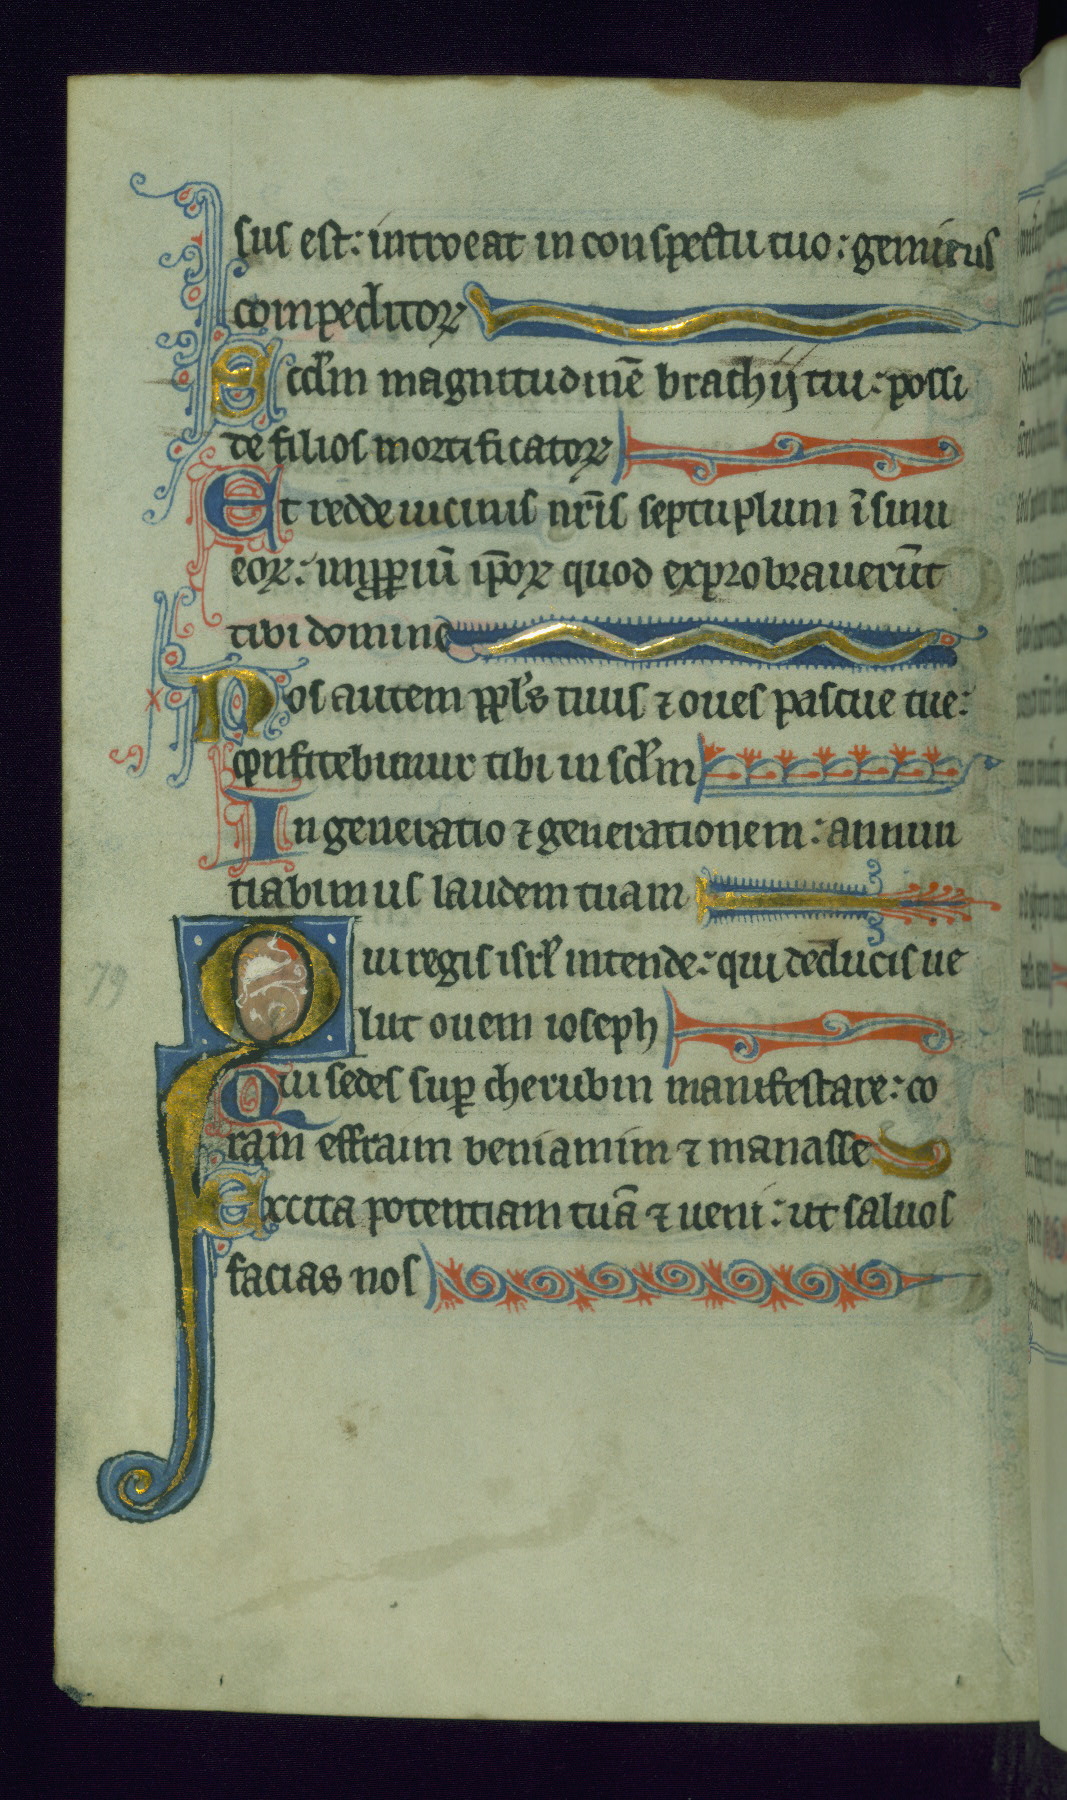 sus est: introeat in conspectu tuo: gemitus
compeditoꝝ
Scd̄m magnitudinē brachij tui: possi
de filios mortificatoꝝ
Et redde uicinis nr̄is septuplum ī sinu
eoꝝ: inꝓꝑiū ip̄oꝝ quod exprobrauerūt
tibi domine
Nos autem ppl's tuus ⁊ oues pascue tue:
ꝯfitebimur tibi in scl̄m
In generatio ⁊ generationem: annun
tiabimus laudem tuam
Qui regis isrl̄ intende: qui deducis ue
lut ouem ioseph
Qui sedes suꝑ cherubin manifestare: co
ram effraim beniamim ⁊ manasse
Excita potentiam tuā ⁊ ueni: ut saluos
facias nos
79